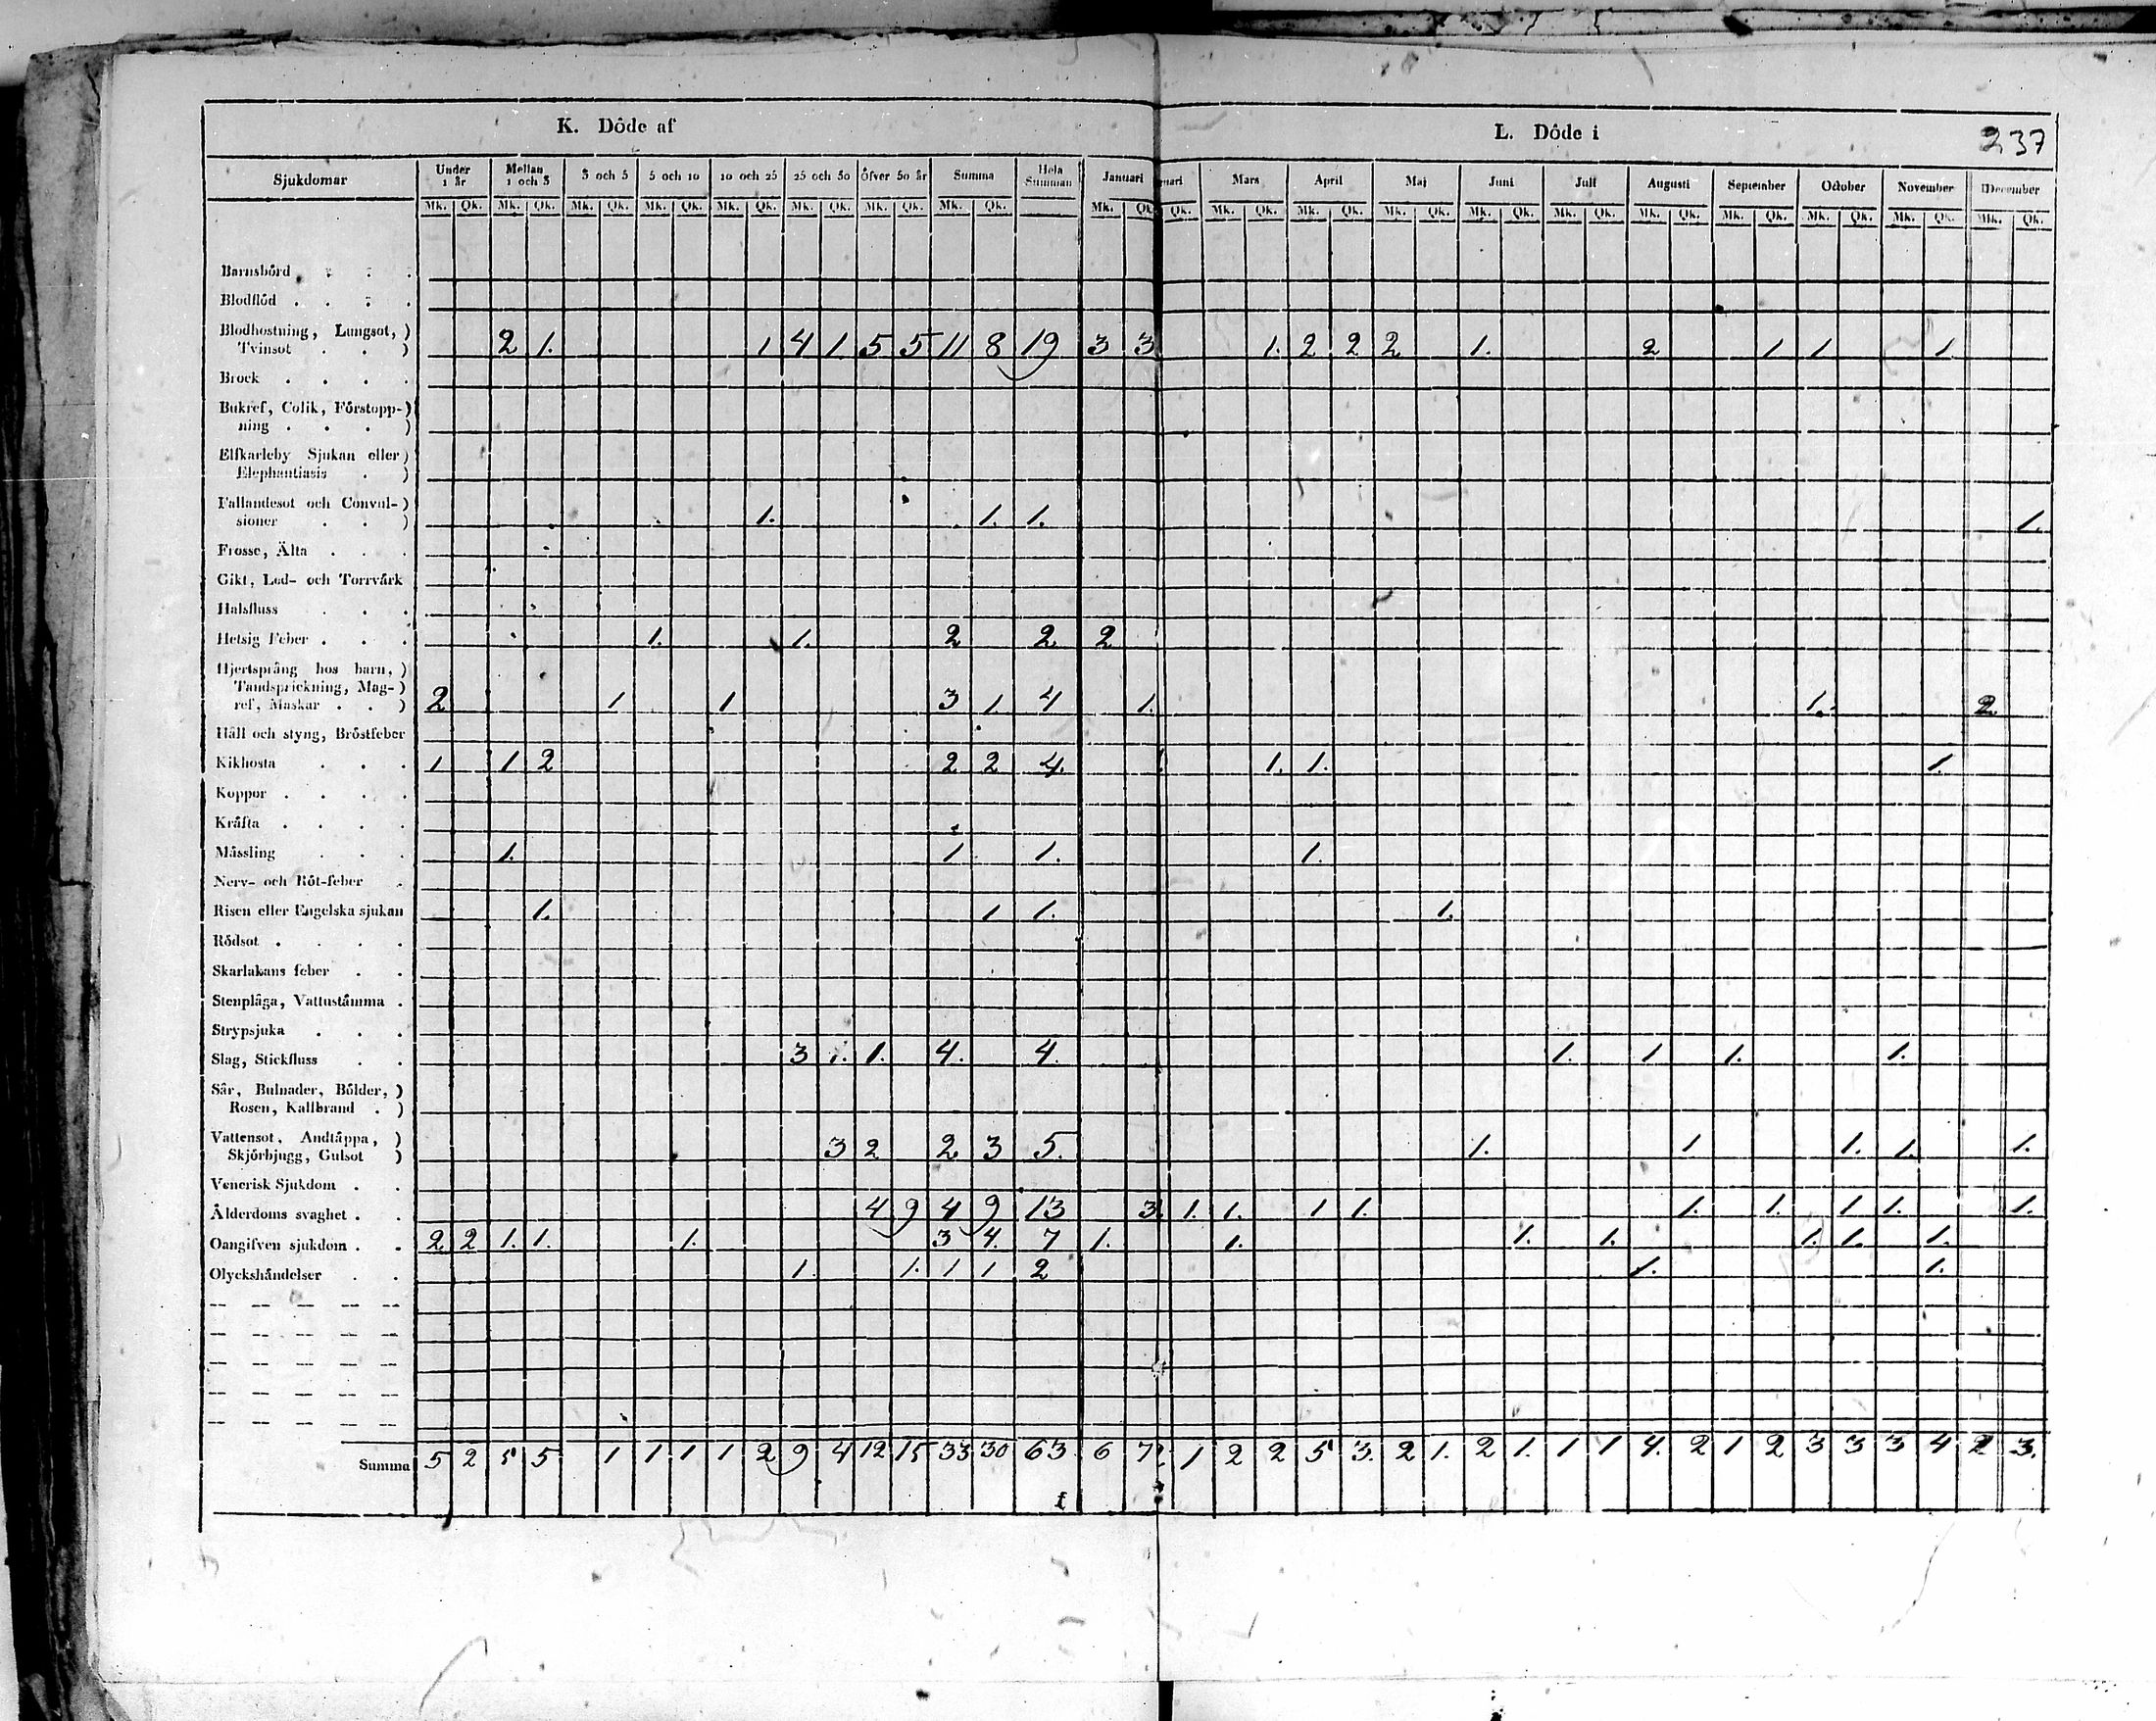 K. Döde af
L. Döde i
237
Sjukdomar Under 1 år Mellan 1 och 3 3 och 5 5 och 10 10 och 25 25 och 50 öfver 50 år Summa Hela Summan Januari Mars April Maj Juni Juli Augusti September October November December
Mk. Qk. Mk. Qk. Mk. Qk. Mk. Qk. Mk. Qk. Mk. Qk. Mk. Qk. Mk. Qk. Mk. Qk. Qk. Mk. Qk. Mk. Qk. Mk. Qk. Mk. Qk. Mk. Qk. Mk. Qk. Mk. Qk. Mk. Qk. Mk. Qk. Mk. Qk.
Barnsbörd . . .
Blodflöd . . . .
Blodhostning, Lungsot, )
Tvinsot . . ) 2 1. 1 4 1 5 5 11 8 19 3 3 1. 2 2 2 1. 2 1 1 1
Brock . . . .
Bukref, Colik, Förstopp-)
ning . . . )
Elfkarleby Sjukan eller )
Elephantiasis . )
Fallandesot och Convul-)
sioner . . ) 1. 1. 1. 1.
Frosse, Älta . . .
Gikt, Led- och Torrvärk
Halsfluss . . .
Hetsig Feber . . . 1. 1. 2 2 2
Hjertsprång hos barn, )
Tandsprickning, Mag-)
ref, Maskar . . ) 2 1 1 3 1. 4 1. 1. 2
Håll och styng, Bröstfeber
Kikhosta . . . 1 1 2 2 2 4. 1. 1. 1.
Koppor . . . .
Kräfta . . . .
Mässling . . . 1. 1 1. 1.
Nerv- och Röt-feber .
Risen eller Engelska sjukan 1. 1 1. 1.
Rödsot . . . .
Skarlakans feber . .
Stenplåga, Vattustämma .
Strypsjuka . . .
Slag, Stickfluss . . 3 1. 1. 4. 4. 1. 1 1. 1.
Sår, Bulnader, Bölder, )
Rosen, Kallbrand . )
Vattensot, Andtäppa, )
Skjörbjugg, Gulsot ) 3 2 2 3 5. 1. 1 1. 1. 1.
Venerisk Sjukdom . .
Ålderdoms svaghet . . 4 9 4 9 13 3 1. 1. 1 1. 1. 1. 1 1. 1.
Oangifven sjukdom . . 2 2 1. 1. 1. 3 4. 7 1. 1. 1. 1. 1. 1. 1.
Olyckshändelser . . 1. 1. 1 1 2 1. 1.
Summa 5 2 5 5 1 1 1 1 2 9 4 12 15 33 30 63 6 7 1 2 2 5 3. 2 1. 2 1. 1 1 4. 2 1 2 3 3 3 4 2 3.